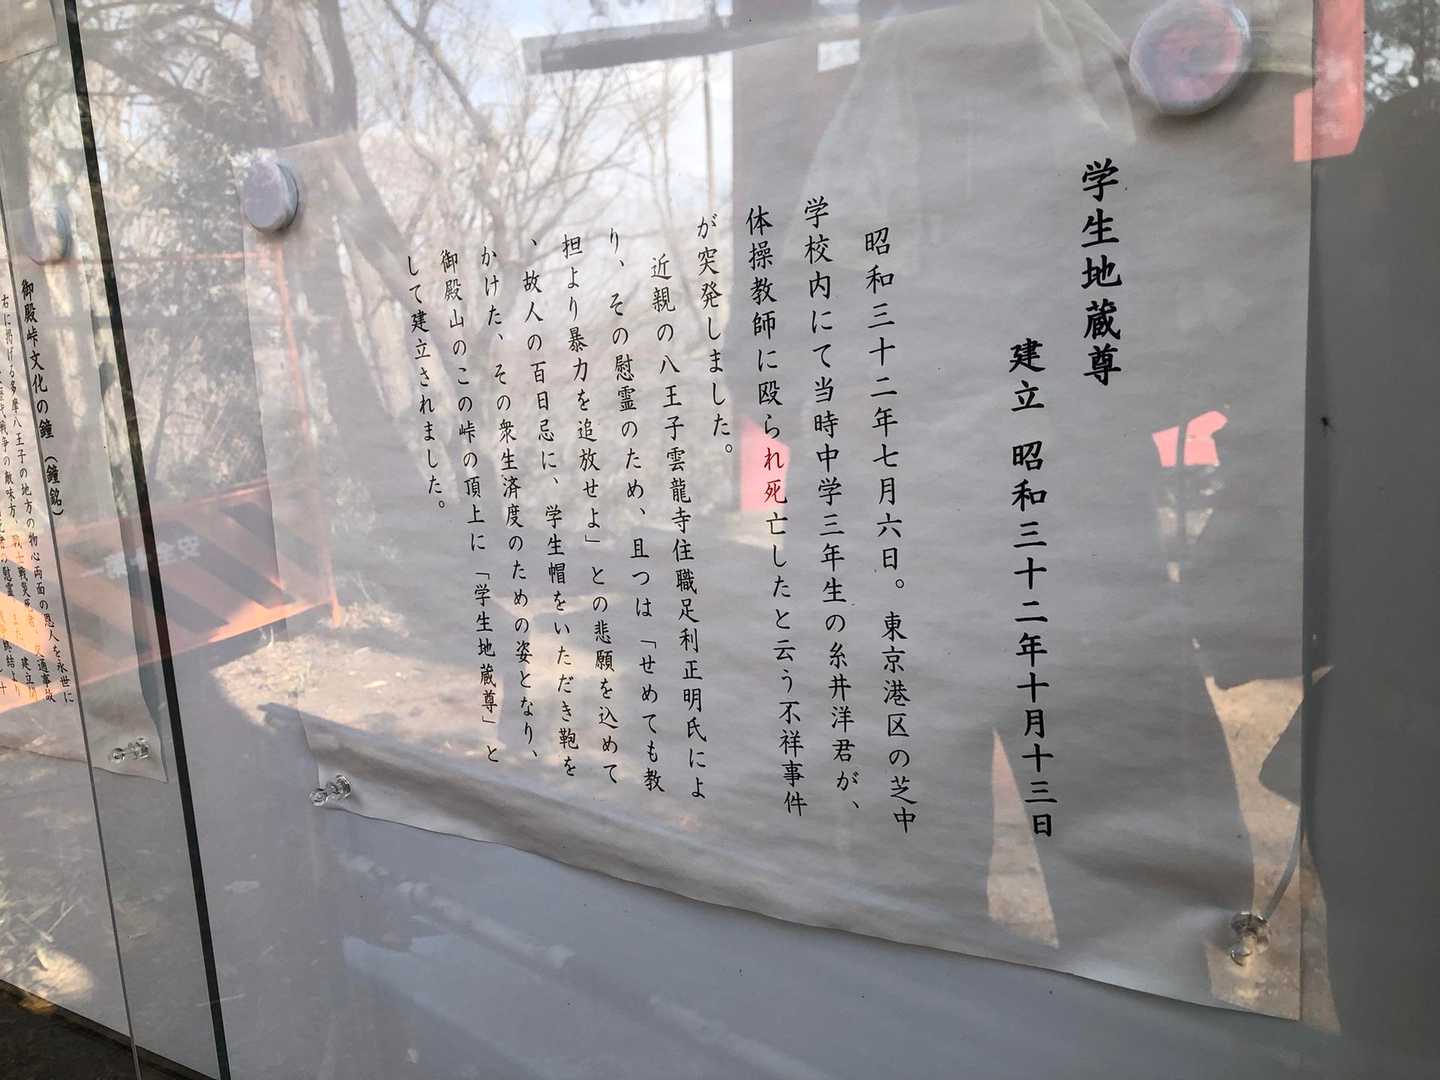 学生地蔵尊
建立 昭和三十二年十月十三日
昭和三十二年七月六日。東京港区の芝中
学校内にて当時中学三年生の糸井洋君が、
体操教師に殴られ死亡したと云う不祥事件
が突発しました。
近親の八王子雲龍寺住職足利正明氏によ
り、その慰霊のため、且つは「せめても教
担より暴力を追放せよ」との悲願を込めて
、故人の百日忌に、学生帽をいただき鞄を
かけた、その衆生済度のための姿となり、
御殿山のこの峠の頂上に「学生地蔵尊」と
して建立されました。
御殿峠文化の鐘（鐘銘）
右に掲げる多摩八王子の地方の物心両面の恩人を永世に